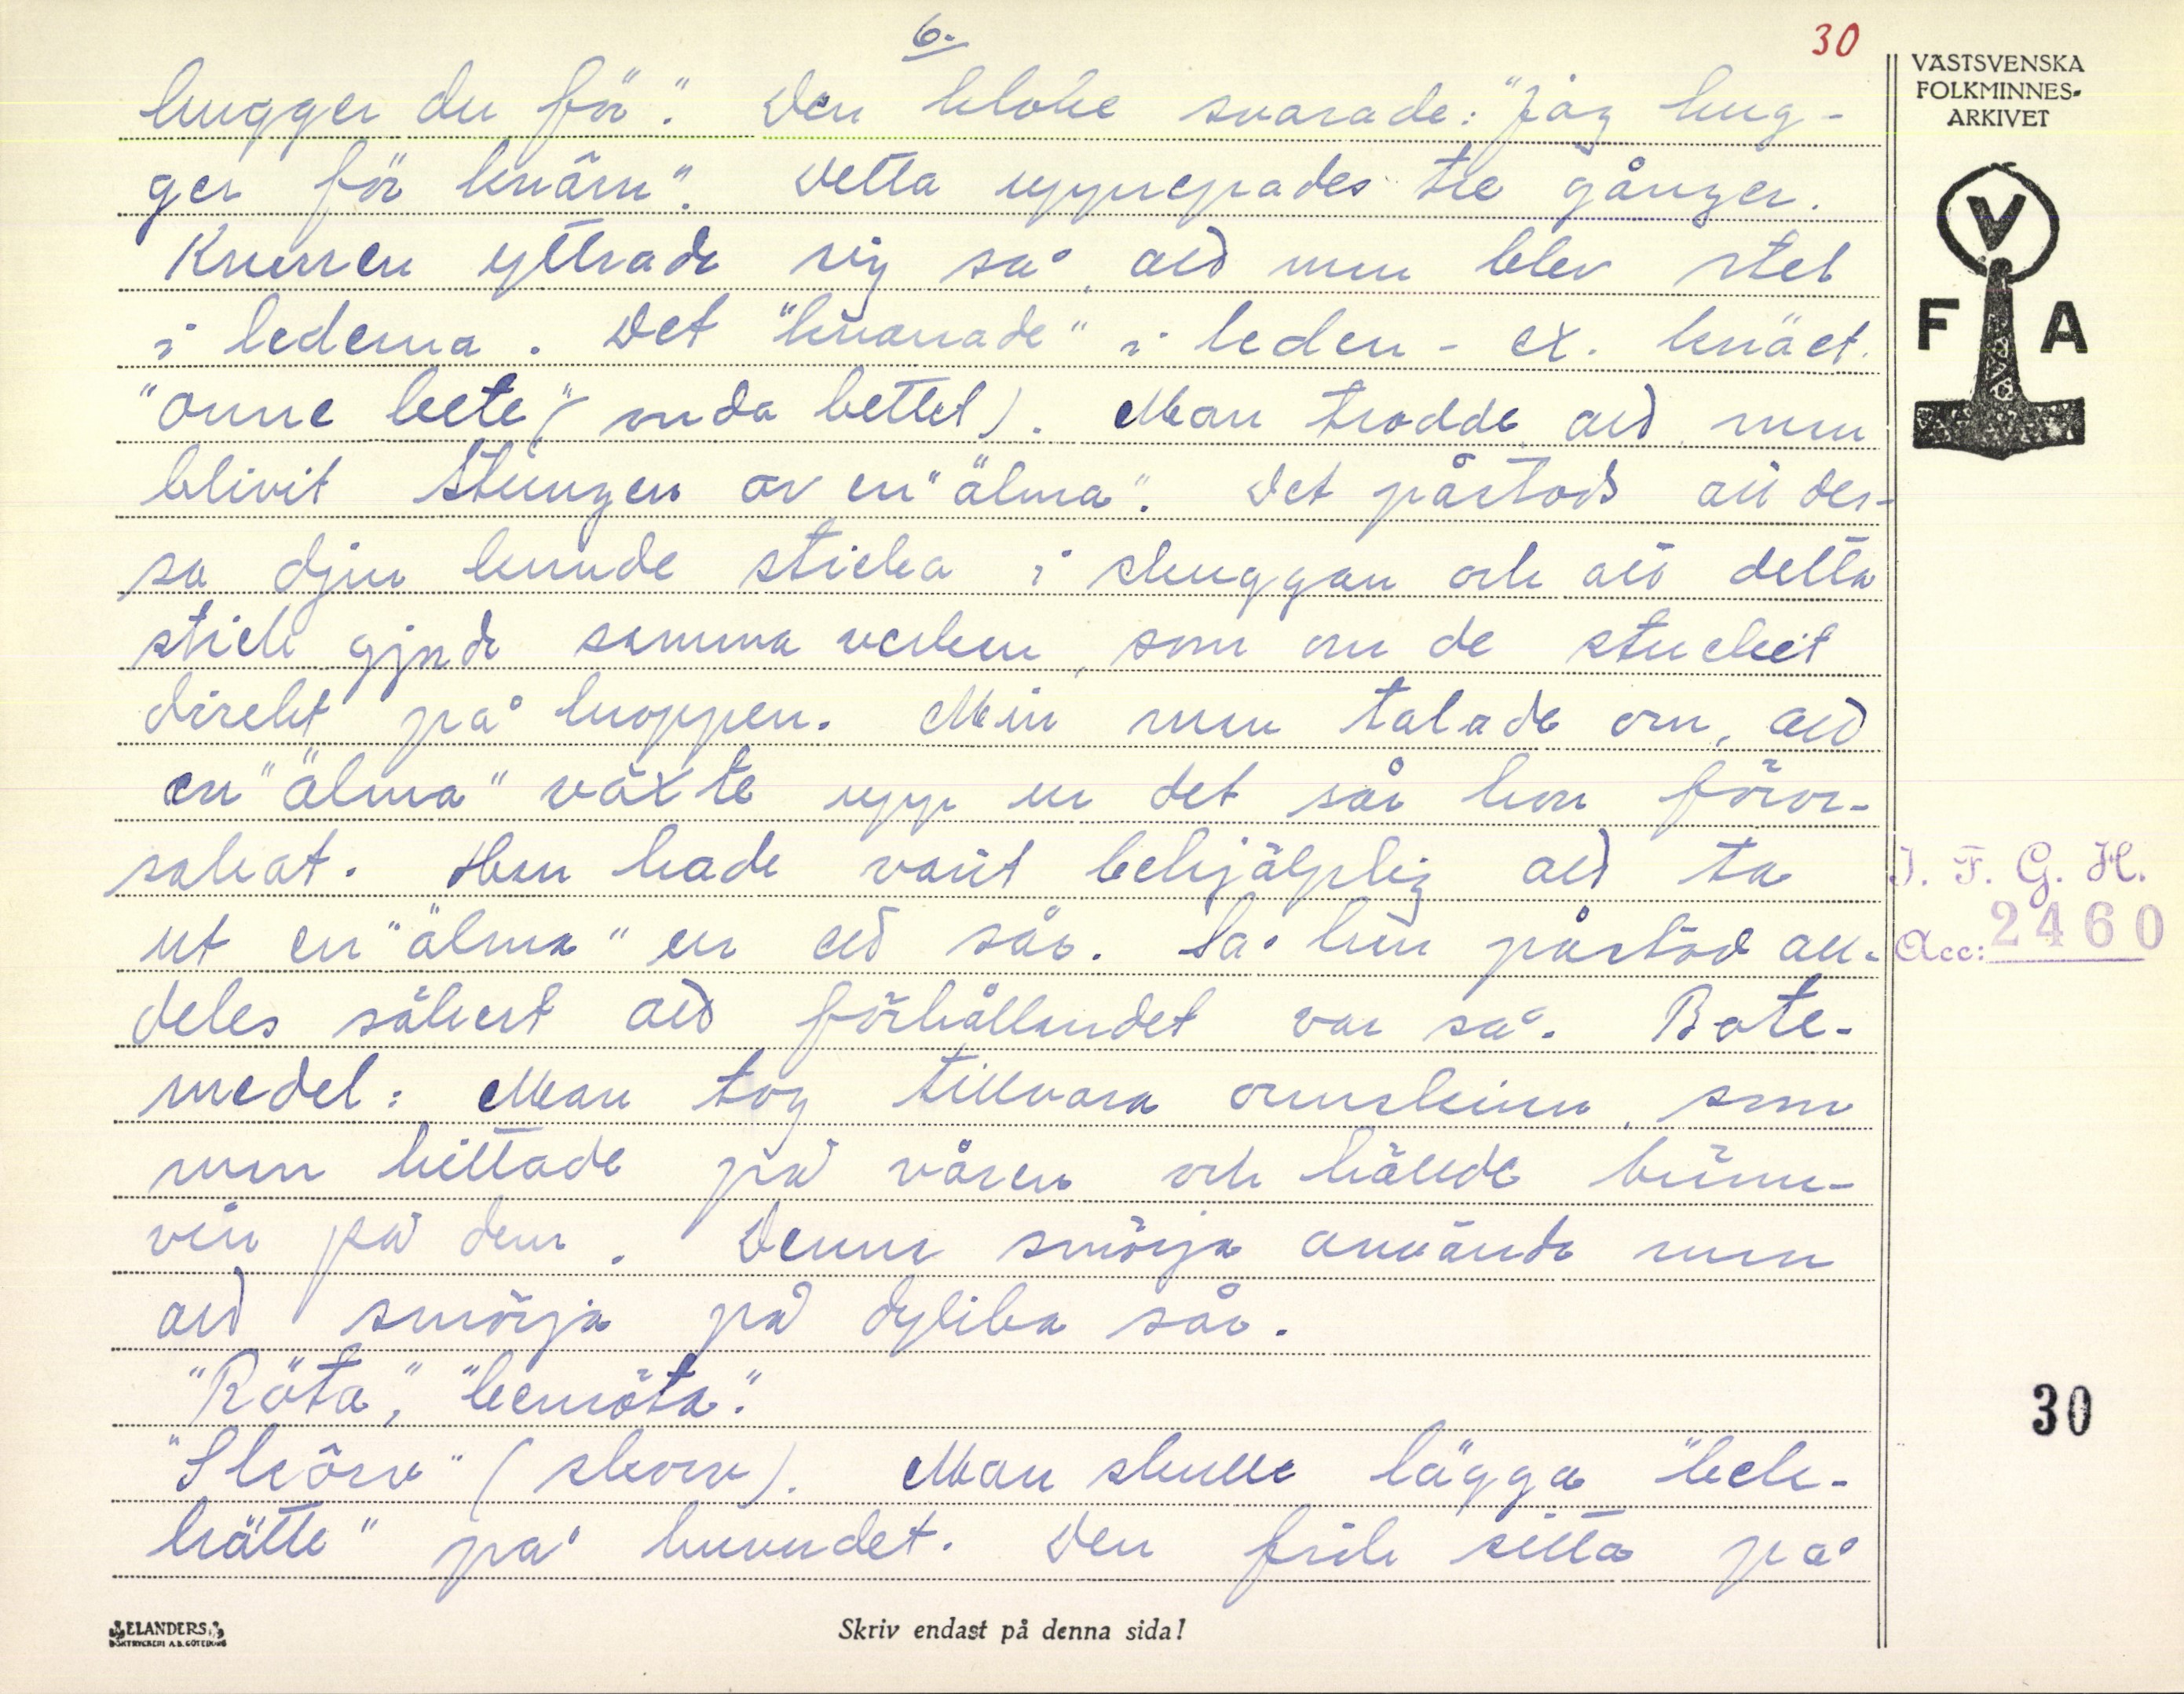 6.
30
hugger du för". Den kloke svarade: "Jag hug-
ger för knârn". Detta upprepades tre gånger.
Knarren yttrade sig så, att man blev stel
i lederna. Det "knarrade" i leden - ex. knäet.
"onne bete" (onda bettet). Man trodde, att man
blivit stungen av en "ålma". Det påstods att des-
sa djur kunde sticka i skuggan och att detta
stick gjorde samma verkan, som om de stuckit
direkt på kroppen. Min mor talade om, att
en "ålma" växte upp ur det sår hon föror-
sakat. Hon hade varit behjälplig att ta
ut en "ålma" ur ett sår. Så hon påstod all-
deles säkert att förhållandet var så. Bote-
medel: Man tog tillvara ormskinn, som
man hittade på våren och hällde bränn-
vin på dem. Denna smörja använde man
att smörja på dylika sår.
"Röta", "benröta".
"Skôrv" (skorv). Man skulle lägga "beck-
hätte" på huvudet. Den fick sitta på
VÄSTSVENSKA
FOLKMINNES-
ARKIVET
V
F A
I. F. G. H.
Acc: 2460
30
ELANDERS
BOKTRYCKERI A.B. GÖTEBORG
Skriv endast på denna sida!